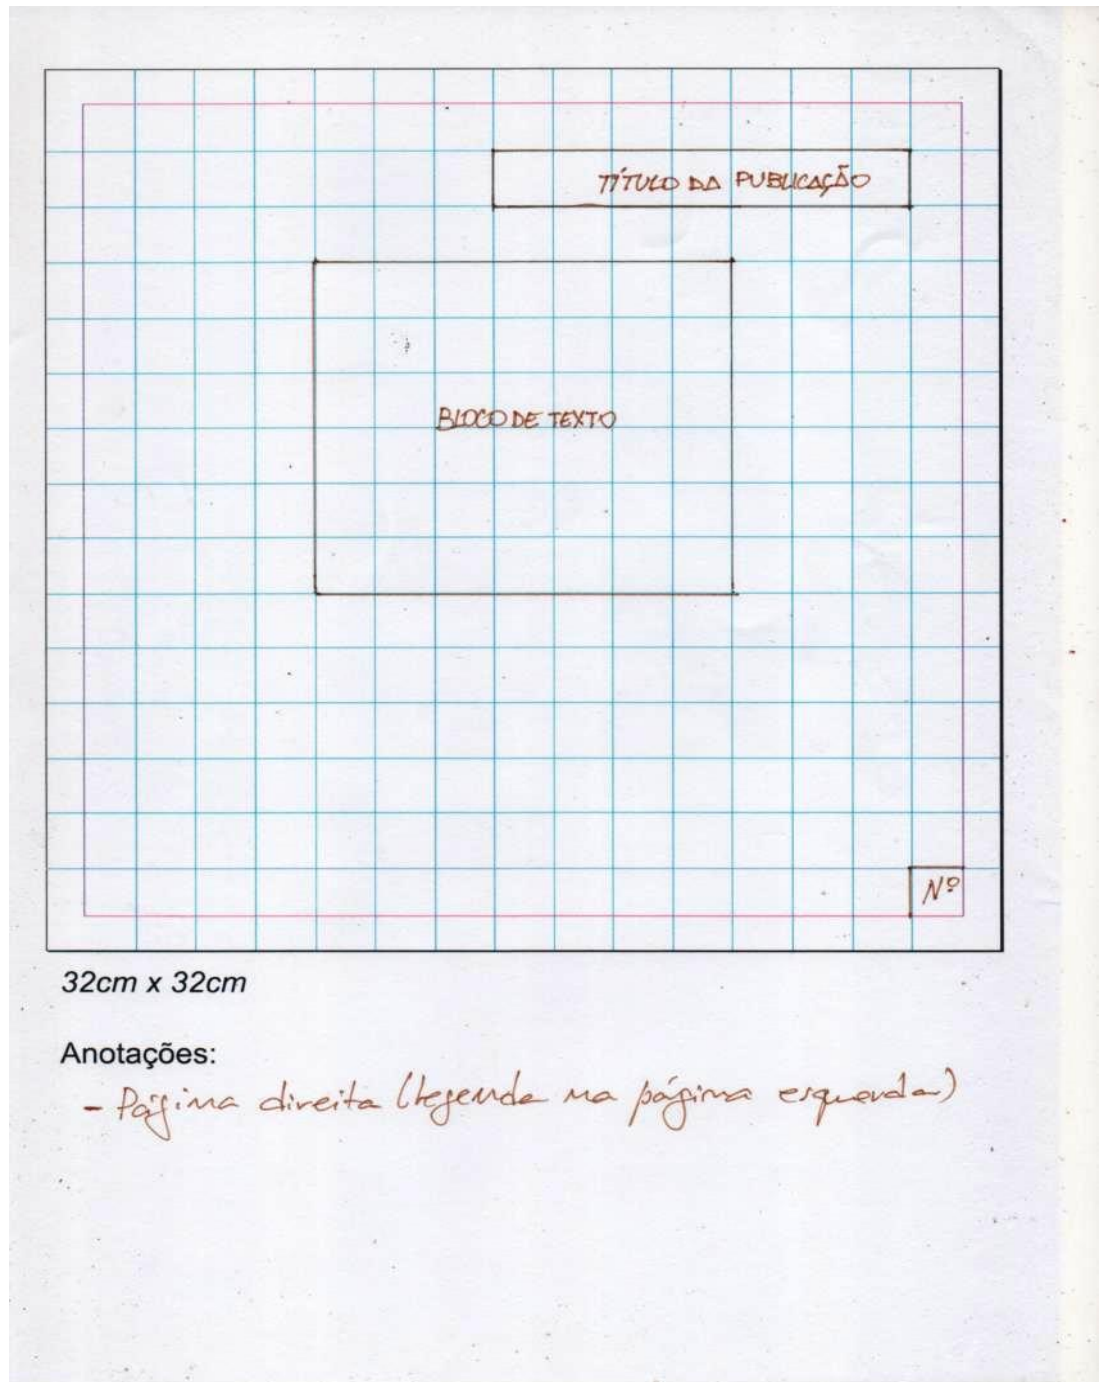 TÍTULO DA PUBLICAÇÃO
BLOCO DE TEXTO
Nº
32cm x 32cm
Anotações:
- Página direita (legenda na página esquerda)